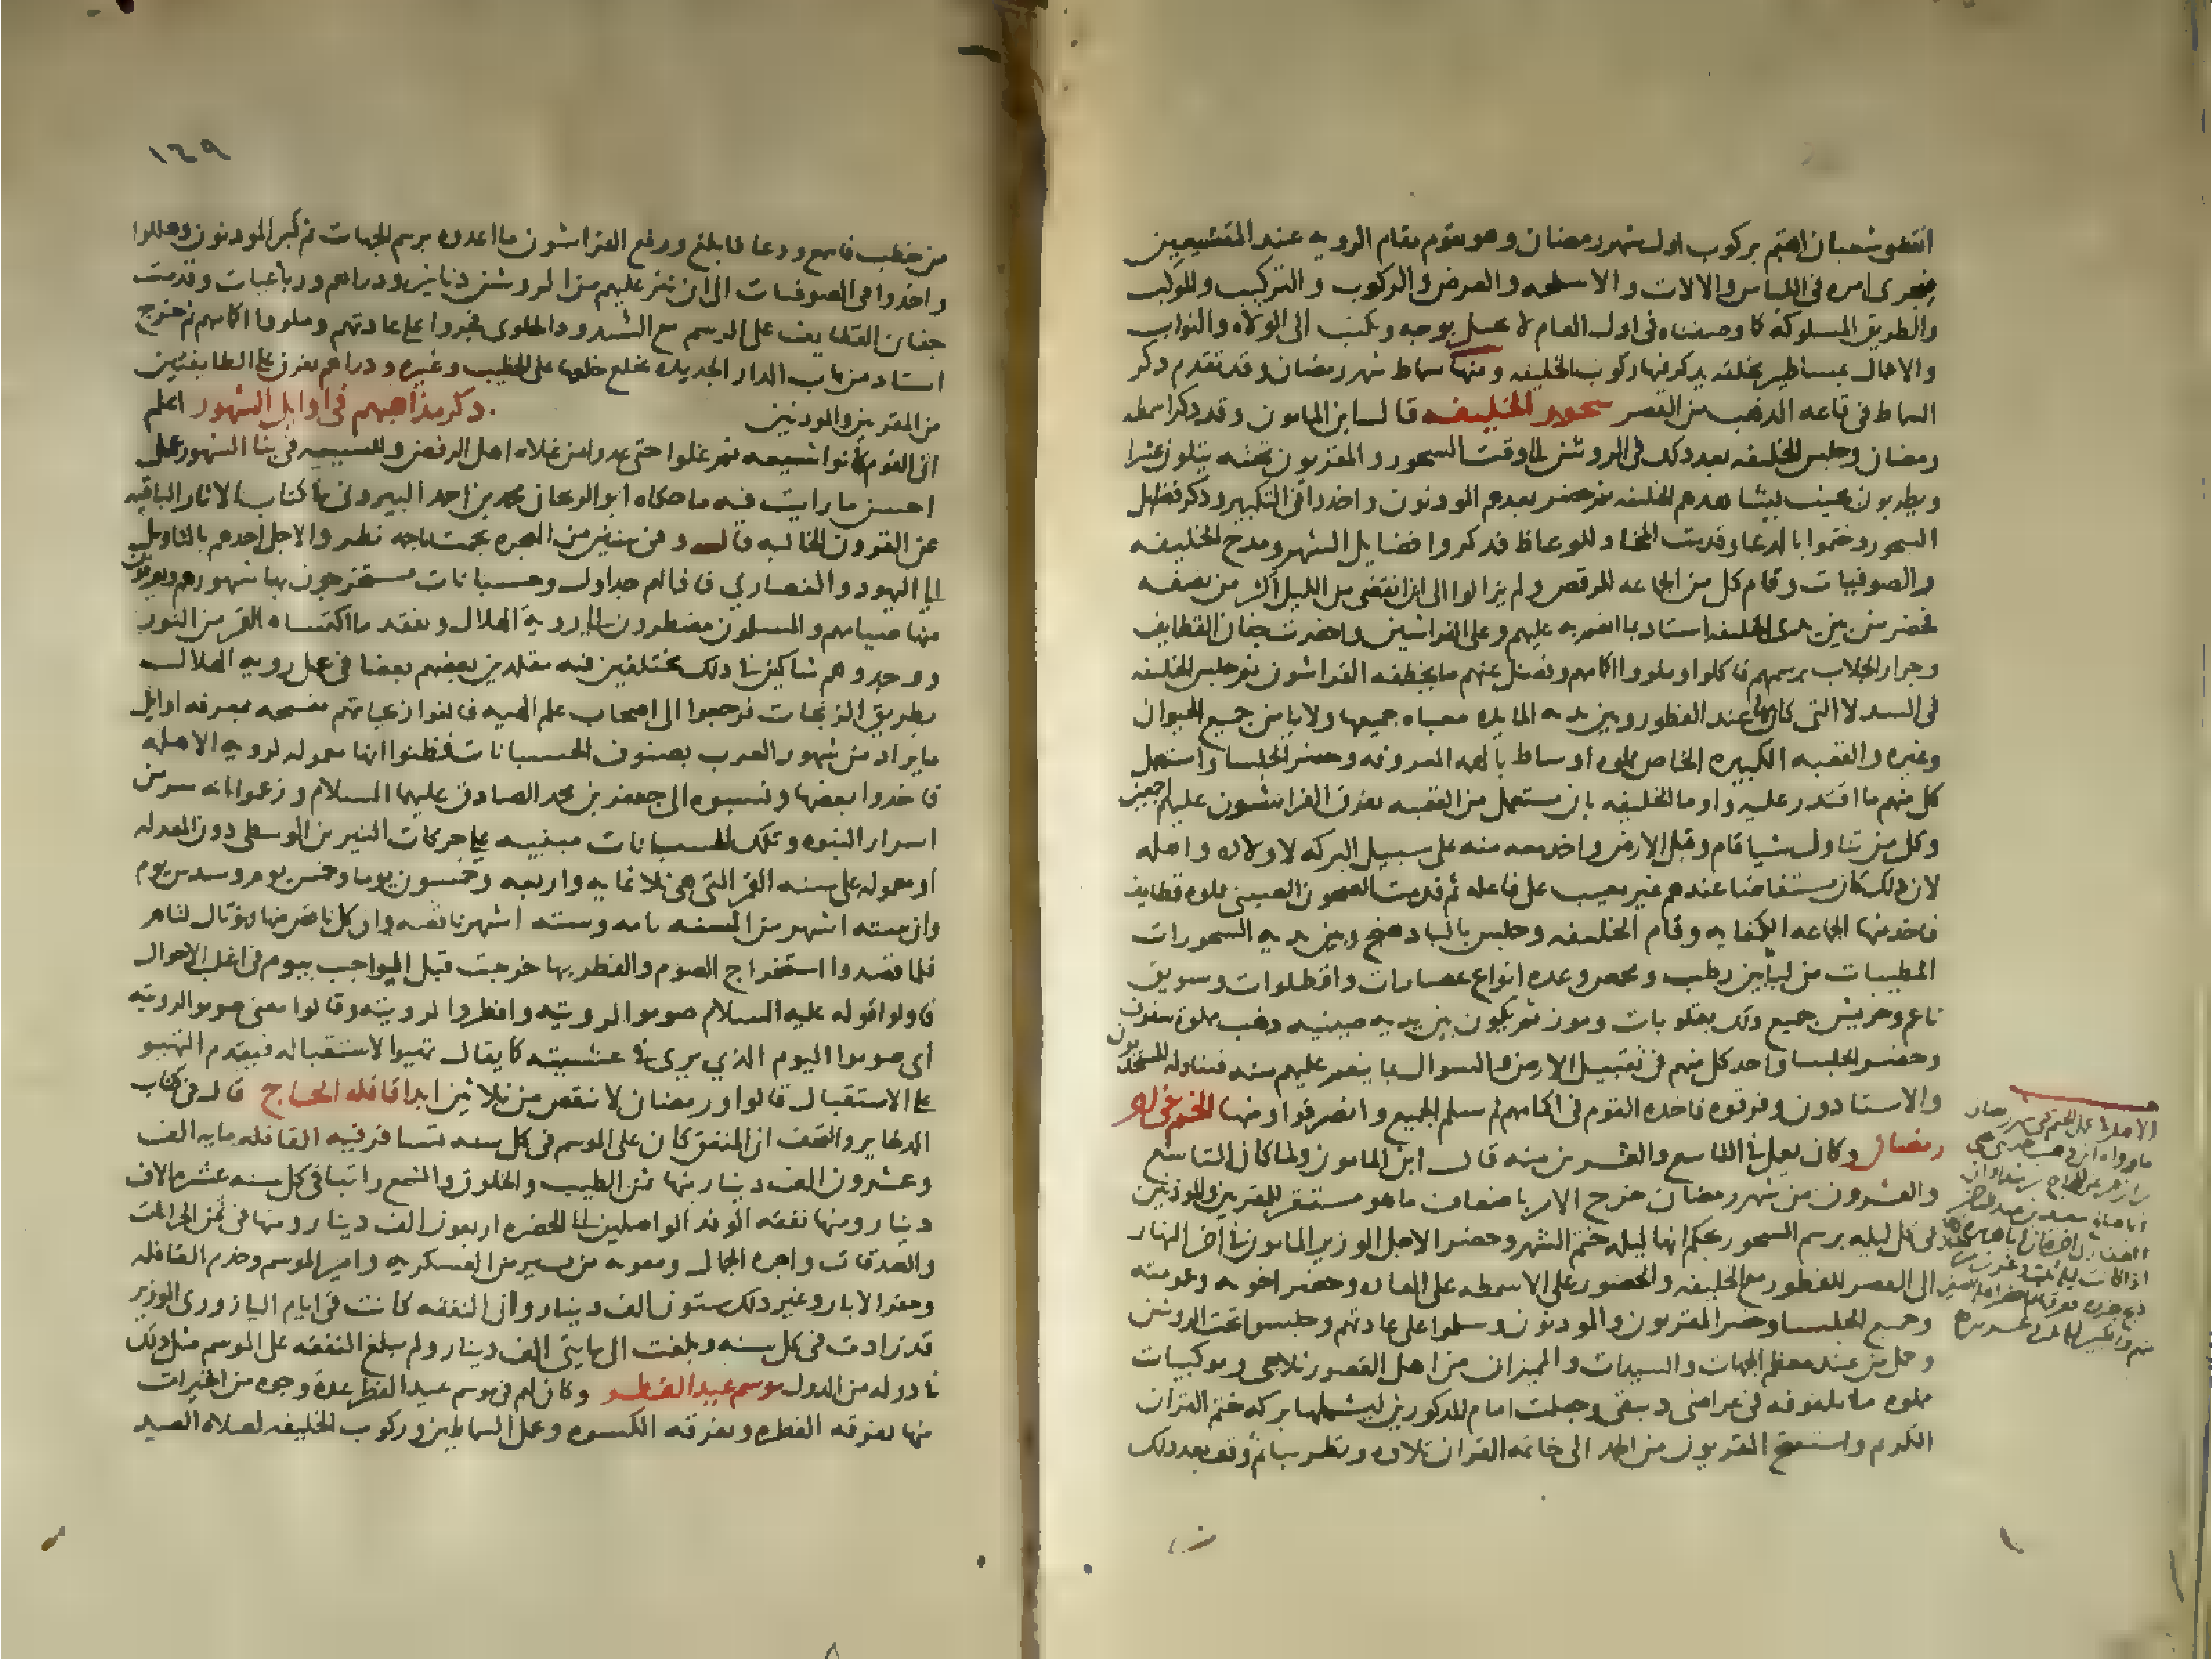 انقضى شعبان اهتم بركوب اول شهر رمضان وهو يقوم مقام الرويه عند المتشيعين
فيجرى امره فى اللباس والالات والاسلحه والعرض والركوب والتركيب والموكب
والطريق المسلوكة كما وصفناه فى اول العام لا يخل بوجه ويكتب الى الولاه والنواب
والاعمال بمساطير مخلقه يذكر فيها ركوب الخليفه ومنها سماط شهر رمضان وقد تقدم ذكر
السماط فى قاعه الذهب من القصر سحور الخليفه قال ابن المامون وقد ذكر اسمطه
رمضان وجلس الخليفه بعد ذلك فى الروشن الى وقت السحور والمقريون تحته يتلون عشرا
ويطربون بحيث يشاهدهم الخليفه ثم حضر بعدهم الموذنون واخذوا فى التكبير وذكر فضايل
السحور وختموا بالدعا وقدمت المخاد للوعاظ فذكروا فضايل الشهر ومدح الخليفه
والصوفيات وقام كل من الجماعه للرقص ولم يزالوا الى ان انقضى من الليل اكثر من نصفه
فحضر من بين يدى الخليفه استاد بما انعم به عليهم وعلى الفراشين واحضرت جفان القطايف
وجرار الجلاب برسمهم فاكلوا وملووا اكامهم وفضل عنهم ما يخطفه الفراشون ثم جلس الخليفه
فى السدلا التى كان بها عند الفطور وبين يديه المايده معباه جميعها ولابا من جميع الحيوان
وغيره والقعبه الكبيره الخاص مملوه اوساط بالهمه المعروفه وحضر الجلسا واستعمل
كل منهم ما اقتدر عليه واوما الخليفه بان يستعمل من القعبه يفرق الفراشون عليهم اجمعين
وكل من تناول شيا قام وقبل الارض واخذ معه منه على سبيل البركه لاولاده واهله
لان ذلك كان مستفاضا عندهم غير معيب على فاعله ثم قدمت الصحون الصينى مملوه قطايف
فاخذ منها الجماعه الكفايه وقام الخليفه وجلس بالباذهنج وبين يديه السحورات
المطيبات من لبأين رطب ومخمر وعده انواع عصارات وافطلوات وسويق
ناعم وجريش جميع ذلك بقلوبات وموز ثم يكون بين يديه صينيه ذهب مملوه سفوف
وحضر الجلسا واخذ كل منهم فى تقبيل الارض والسوال بما ينعم عليهم منه فيتناوله المستخدمون
والاستادون وفرقوه فاخذه القوم فى اكمامهم ثم سلم الجميع وانصرفوا ومنها الختم فى اخر
رمضان وكان يعمل فى التاسع والعشرين منه قال ابن المامون ولما كان التاسع
والعشرون من شهر رمضان خرج الامر باضعاف ما هو مستقر للمقريين والموذنين
فى كل ليله برسم السحور بحكم انها ليله ختم الشهر وحضر الاجل الوزير المامون فى اخر النهار
الى القصر للفطور مع الخليفه والحضور على الاسمطه على العاده وحضر اخوته وعمومته
وجميع الجلسا وحضر المقريون والموذنون وسلموا على عادتهم وجلسوا تحت الروشن
وحمل من عند معظم الجهات والسيدات والمميزات من اهل القصور ثلاجى وموكبيات
مملوه ما ملفوفه فى عراضى دبيقى وجعلت امام المذكورين ليشملها بركه ختم القران
الكريم واستفتح المقريون من الحمد الى خاتمه القران تلاوه وتطريبا ثم وقف بعد ذلك
١٤٩
من خطب فاسمع ودعا فابلغ ورفع الفراشون ما اعدوه برسم الجهات ثم كبر الموذنون وهللوا
واخذوا فى الصوفيات الى ان نثر عليهم من الروشن دنانير ودراهم ورباعيات وقدمت
جفان القطايف على الرسم مع البسندود والحلوى فجروا على عادتهم وملووا اكمامهم ثم خرج
استاد من باب الدار الجديده بخلع خلعها على الخطيب وغيره ودراهم تفرق على الطايفتين
من المقريين والموذنين ذكر مذاهبهم فى اوايل الشهور اعلم
ان القوم كانوا شيعه ثم غلوا حتى عدوا من غلاه اهل الرفض وللشيعه فى بنا الشهور عمل
احسن ما رايت فيه ما حكاه ابو الريحان محمد بن احمد البيرونى فى كتاب الاثار الباقيه
عن القرون الخاليه قال وفى سنين من الهجره نجمت ناجمه نظروا لاجل اخذهم بالتاويل
الى اليهود والنصارى فاذا لهم جداول وحسبانات يستخرجون بها شهورهم ويعرفون
منها صيامهم والمسلمون مضطرون الى رويه الهلال وتفقد ما اكتساه القمر من النور
ووجدوهم شاكين فى ذلك مختلفين فيه مقلدين بعضهم بعضا فى عمل رويه الهلال
بطريق الزيجات فرجعوا الى اصحاب علم الهيه فالفوا زيجاتهم مفتتحه بمعرفه اوايل
ما يراد من شهور العرب بصنوف الحسبانات فظنوا انها معموله لرويه الاهله
فاخذوا بعضها ونسبوه الى جعفر بن محمد الصادق عليهما السلام وزعموا انه سر من
اسرار النبوه وتلك الحسبانات مبنيه على حركات النيرين الوسطى دون المعدله
او معموله على سنه القمر التى هى ثلاثمايه واربعه وخمسون يوما وخمس يوم وسدس يوم
وان سته اشهر من السنه تامه وسته اشهر ناقصه وان كل ناقص منها فهو تال لتام
فلما قصدوا استخراج الصوم والفطر بها خرجت قبل الواجب بيوم فى اغلب الاحوال
فاولوا قوله عليه السلام صوموا لرويته وافطروا لرويته وقالوا معنى صوموا لرويته
اى صوموا اليوم الذى يرى فى عشيته كما يقال تهيوا لاستقباله فيقدم التهيو
على الاستقبال قالوا ورمضان لا ينقص من ثلاثين ابدا قافله الحاج قال فى كتاب
الذخاير والتحف ان المنفق كان على الموسم فى كل سنه تسافر فيه القافله مايه الف
وعشرون الف دينار منها ثمن الطيب والحلوى والشمع راتبا فى كل سنه عشره الاف
دينار ومنها نفقه الوفد الواصلين الى الحضره اربعون الف دينار ومنها فى ثمن الجرايات
والصدقات واجره الجمال ومعونه من يسير من العسكريه وامير الموسم وخدم القافله
وحفر الابار وغير ذلك ستون الف دينار وان النفقه كانت فى ايام اليازورى الوزير
قد زادت فى كل سنه وبلغت الى مايتى الف دينار ولم تبلغ النفقه على الموسم مثل ذلك
فى دوله من الدول موسم عيد الفطر وكان لهم فى موسم عيد الفطر عده وجوه من الخيرات
منها تفرقه الفطره وتفرقه الكسوه وعمل السماط وركوب الخليفه لصلاه العيد